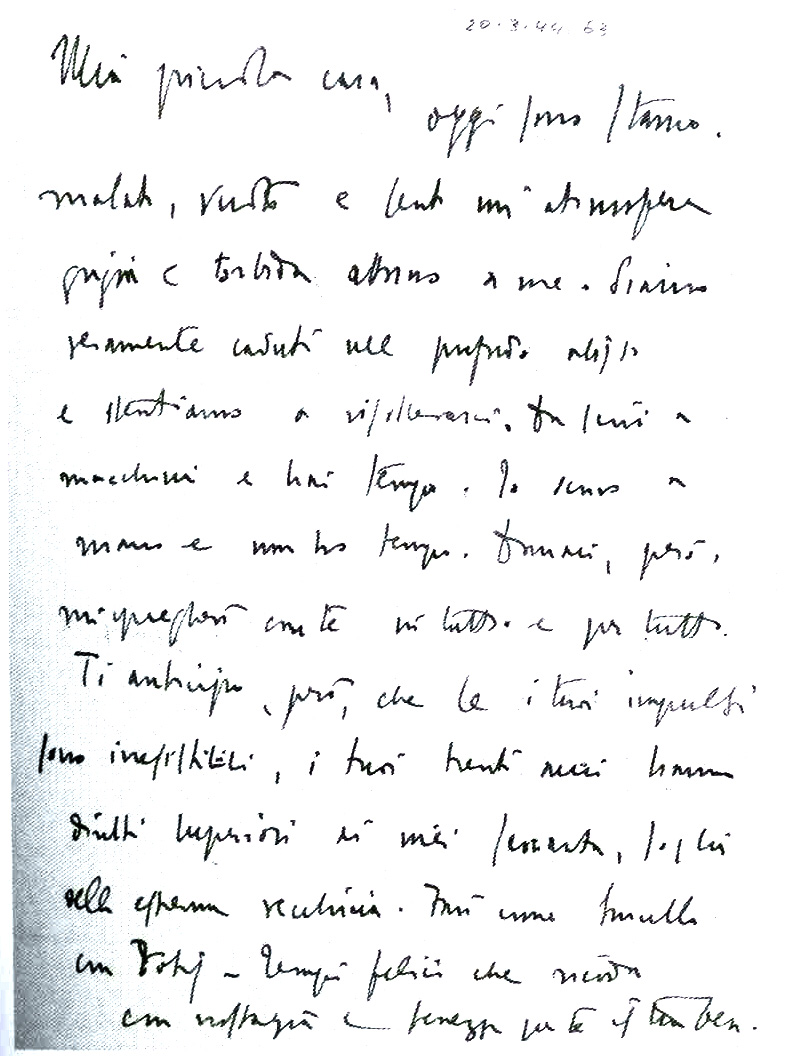 20.3.44 63
Mia piccola cara,
oggi sono stanco.
malato, vuoto e sento un'atmosfera
grigia e torbida attorno a me. Siamo
veramente caduti nel profondo abisso
e stentiamo a risollevarci. Tu scrivi a
macchina e hai tempo. Io scrivo a
mano e non ho tempo. Domani, però,
mi spiegherò con te in tutto e per tutto.
Ti anticipo, però, che se i tuoi impulsi
sono irresistibili, i tuoi trenta anni hanno
diritti superiori ai miei sessanta, soglia
della estrema vecchiaia. Farò come
con - Tempi felici che ricordo
con nostalgia e tenerezza per te